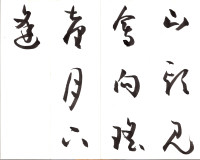 山頭見
會向瑤
臺月下
逢